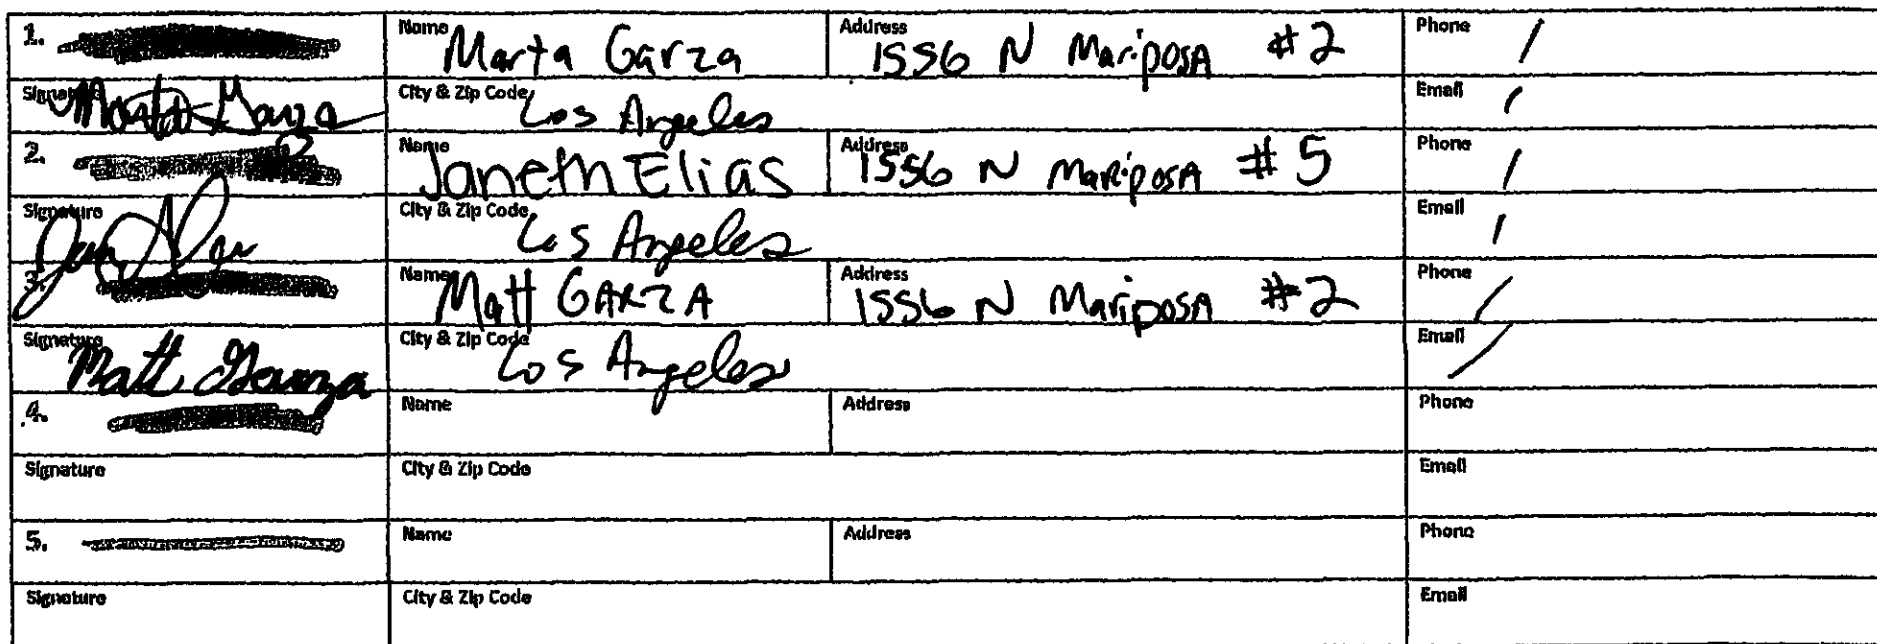 1. Name Marta Garza Address 1556 N Mariposa #2 Phone /
Signature Marta Garza City & Zip Code Los Angeles Email /
2. Name Janeth Elias Address 1556 N Mariposa #5 Phone /
Signature City & Zip Code Los Angeles Email /
3. Name Matt GARZA Address 1556 N Mariposa #2 Phone /
Signature Matt Garza City & Zip Code Los Angeles Email /
4. Name Address Phone
Signature City & Zip Code Email
5. Name Address Phone
Signature City & Zip Code Email